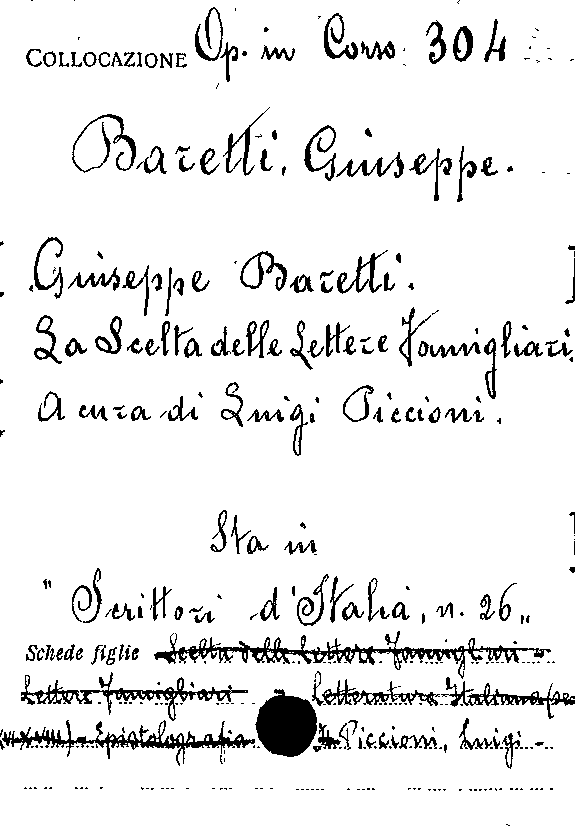 COLLOCAZIONE Op. in Corso 304
Baretti, Giuseppe.
Giuseppe Baretti.
La Scelta delle Lettere Famigliari.
A cura di Luigi Piccioni.
Sta in
"Scrittori d'Italia, n. 26"
Schede figlie Scelta delle Lettere Famigliari -
Lettere Famigliari - Letteratura Italiana (se
XVIII) - Epistolografia Piccioni, Luigi -